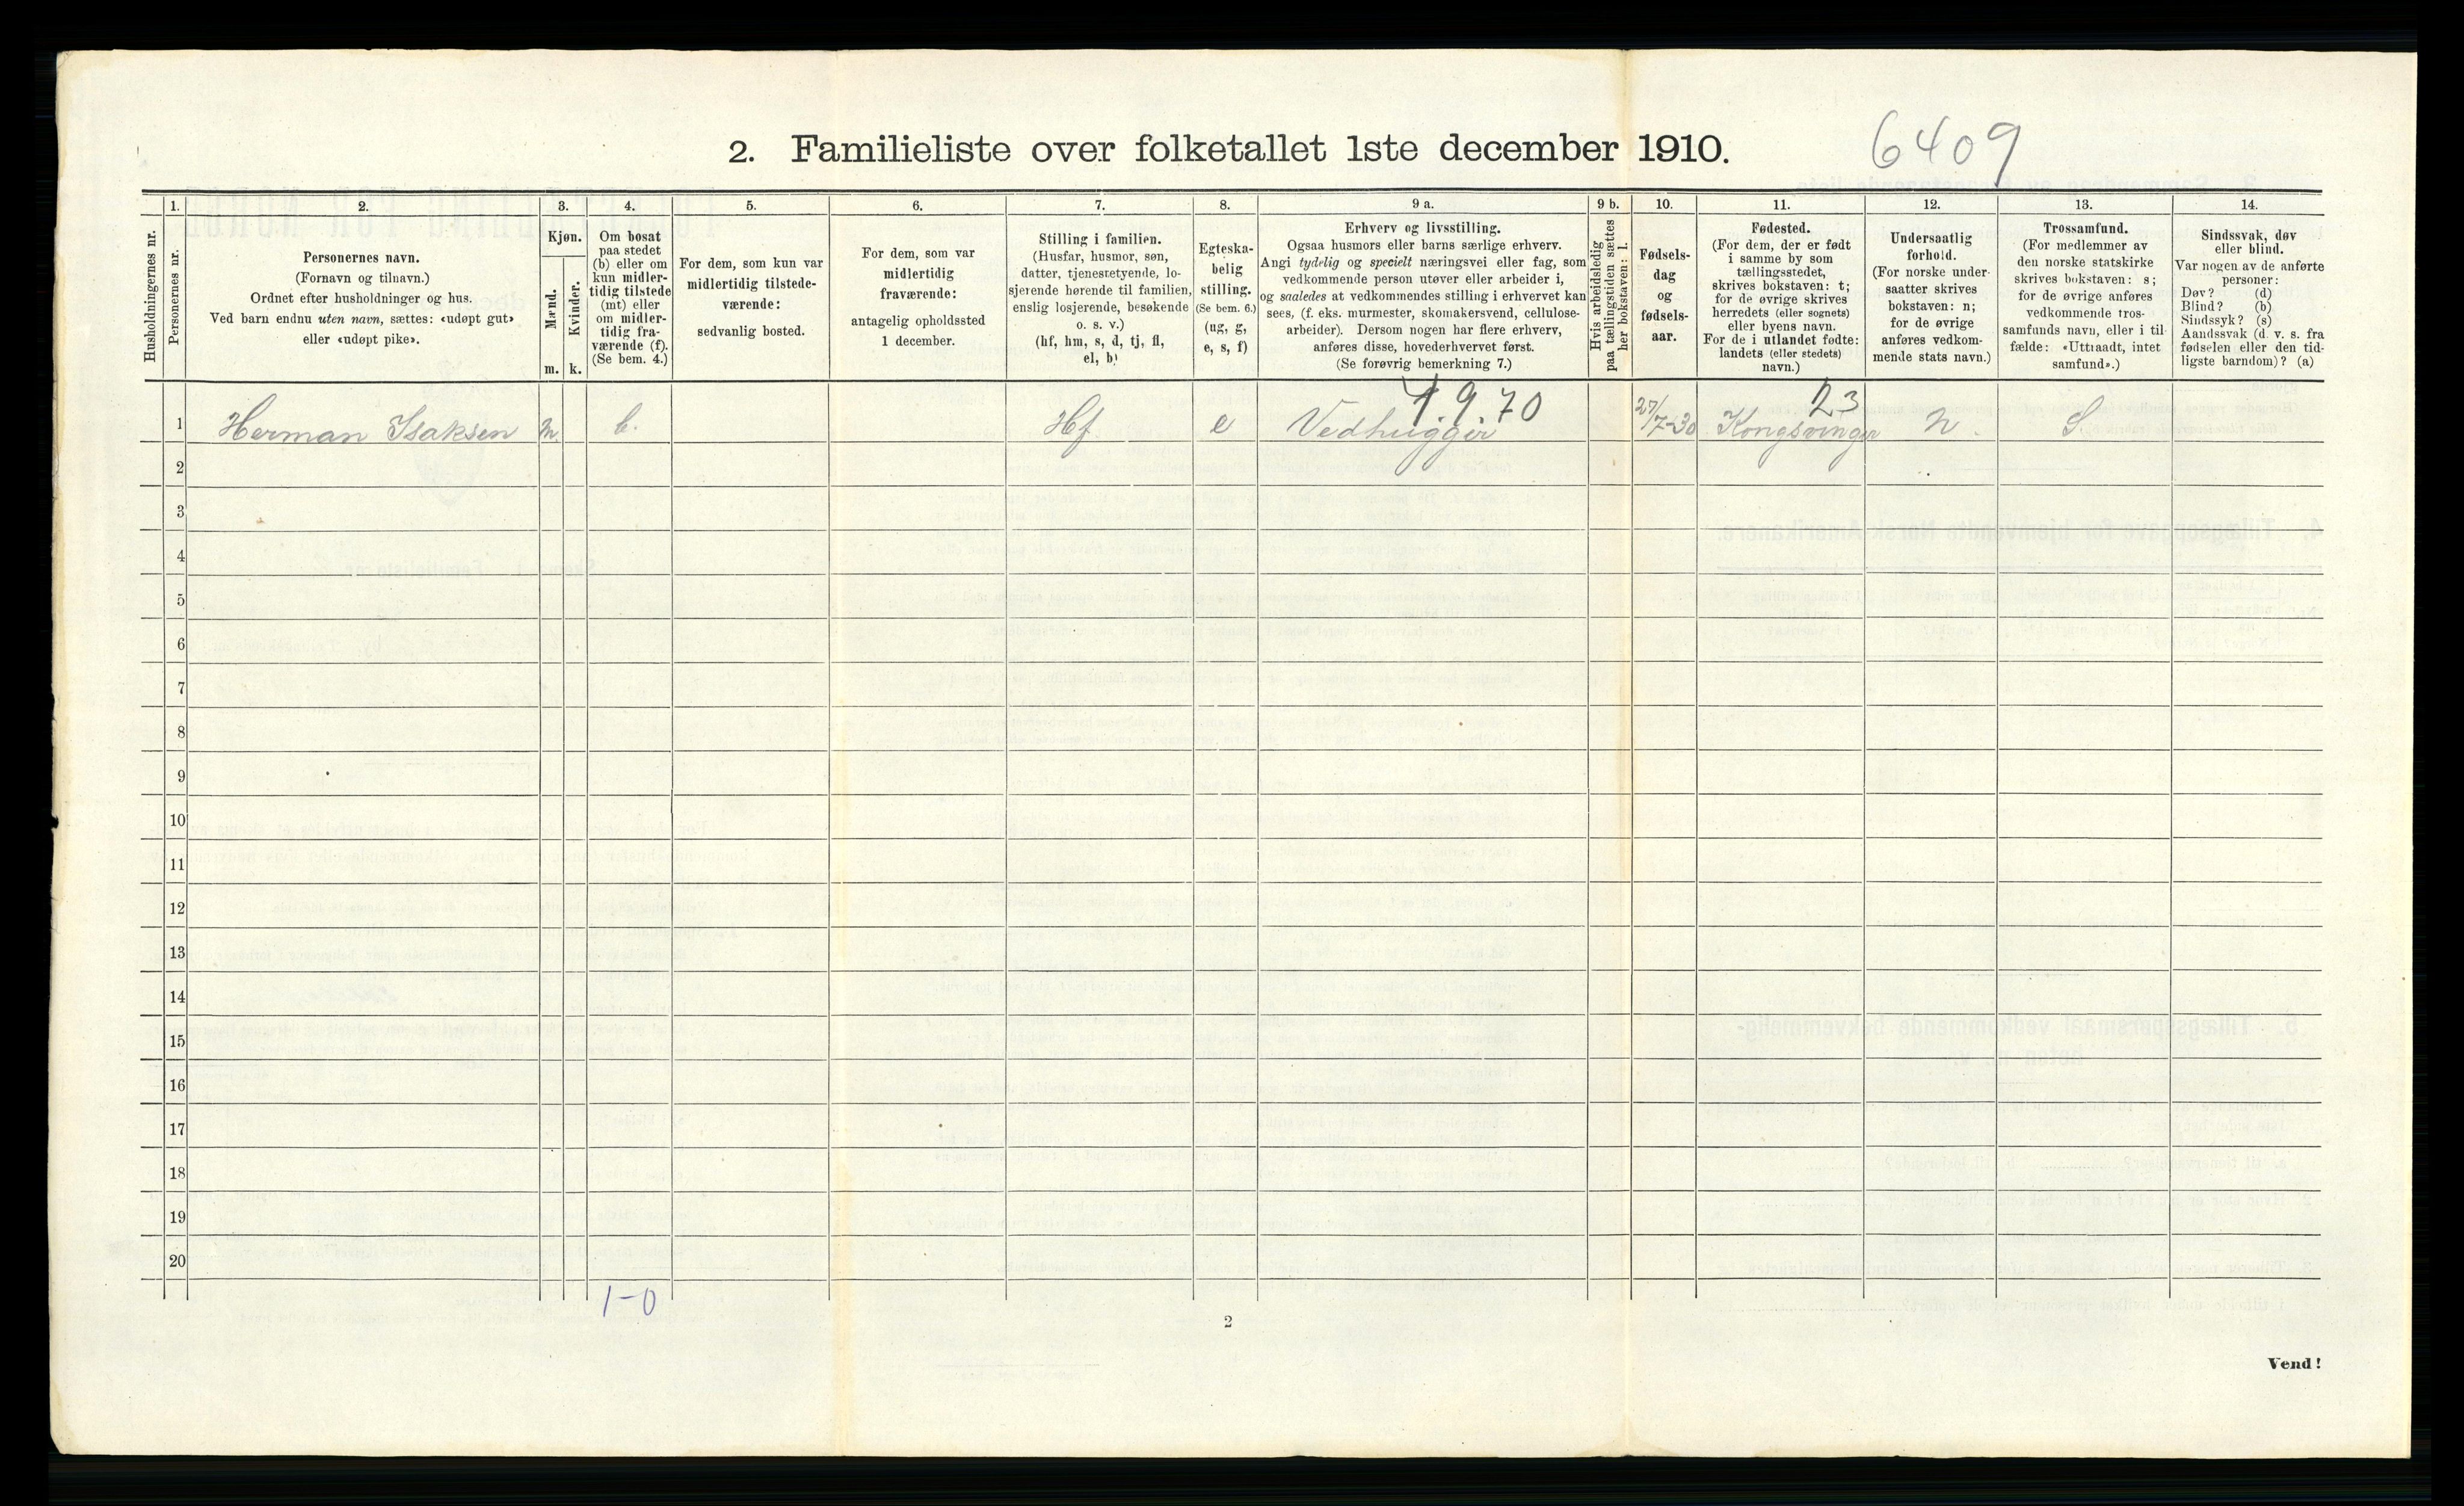 2. Familieliste over folketallet 1ste december 1910.
6409
Husholdningernes nr.
1.
Personernes nr.
2.
Personernes navn.
(Fornavn og tilnavn.)
Ordnet efter husholdninger og hus.
Ved barn endnu uten navn, sættes: «udøpt gut»
eller «udøpt pike».
3.
Kjøn.
Mænd.
Kvinder.
m. k.
4.
Om bosat
paa stedet
(b) eller om
kun midler-
tidig tilstede
(mt) eller
om midler-
tidig fra-
værende (f).
(Se bem. 4.)
5.
For dem, som kun var
midlertidig tilstede-
værende:
sedvanlig bosted.
6.
For dem, som var
midlertidig
fraværende:
antagelig opholdssted
1 december.
7.
Stilling i familien.
(Husfar, husmor, søn,
datter, tjenestetyende, lo-
sjerende hørende til familien,
enslig losjerende, besøkende
o. s. v.)
(hf, hm, s, d, tj, fl,
el, b)
8.
Egteska-
belig
stilling.
(Se bem. 6.)
(ug, g,
e, s, f)
9 a.
Erhverv og livsstilling.
Ogsaa husmors eller barns særlige erhverv.
Angi tydelig og specielt næringsvei eller fag, som
vedkommende person utøver eller arbeider i,
og saaledes at vedkommendes stilling i erhvervet kan
sees, (f. eks. murmester, skomakersvend, cellulose-
arbeider). Dersom nogen har flere erhverv,
anføres disse, hovederhvervet først.
(Se forøvrig bemerkning 7.)
9 b.
Hvis arbeidsledig
paa tællingstiden sættes
her bokstaven: l.
10.
Fødsels-
dag
og
fødsels-
aar.
11.
Fødested.
(For dem, der er født
i samme by som
tællingsstedet,
skrives bokstaven: t;
for de øvrige skrives
herredets (eller sognets)
eller byens navn.
For de i utlandet fødte:
landets (eller stedets)
navn.)
12.
Undersaatlig
forhold.
(For norske under-
saatter skrives
bokstaven: n;
for de øvrige
anføres vedkom-
mende stats navn.)
13.
Trossamfund.
(For medlemmer av
den norske statskirke
skrives bokstaven: s;
for de øvrige anføres
vedkommende tros-
samfunds navn, eller i til-
fælde: «Uttraadt, intet
samfund».)
14.
Sindssvak, døv
eller blind.
Var nogen av de anførte
personer:
Døv? (d)
Blind? (b)
Sindssyk? (s)
Aandssvak (d. v. s. fra
fødselen eller den tid-
ligste barndom)? (a)
1.9.70
23
1 Herman Isaksen m. b. Hf e Vedhugger 27/7-30 Kongsvinger n. S
2
3
4
5
6
7
8
9
10
11
12
13
14
15
16
17
18
19
20
1-0
2
Vend!